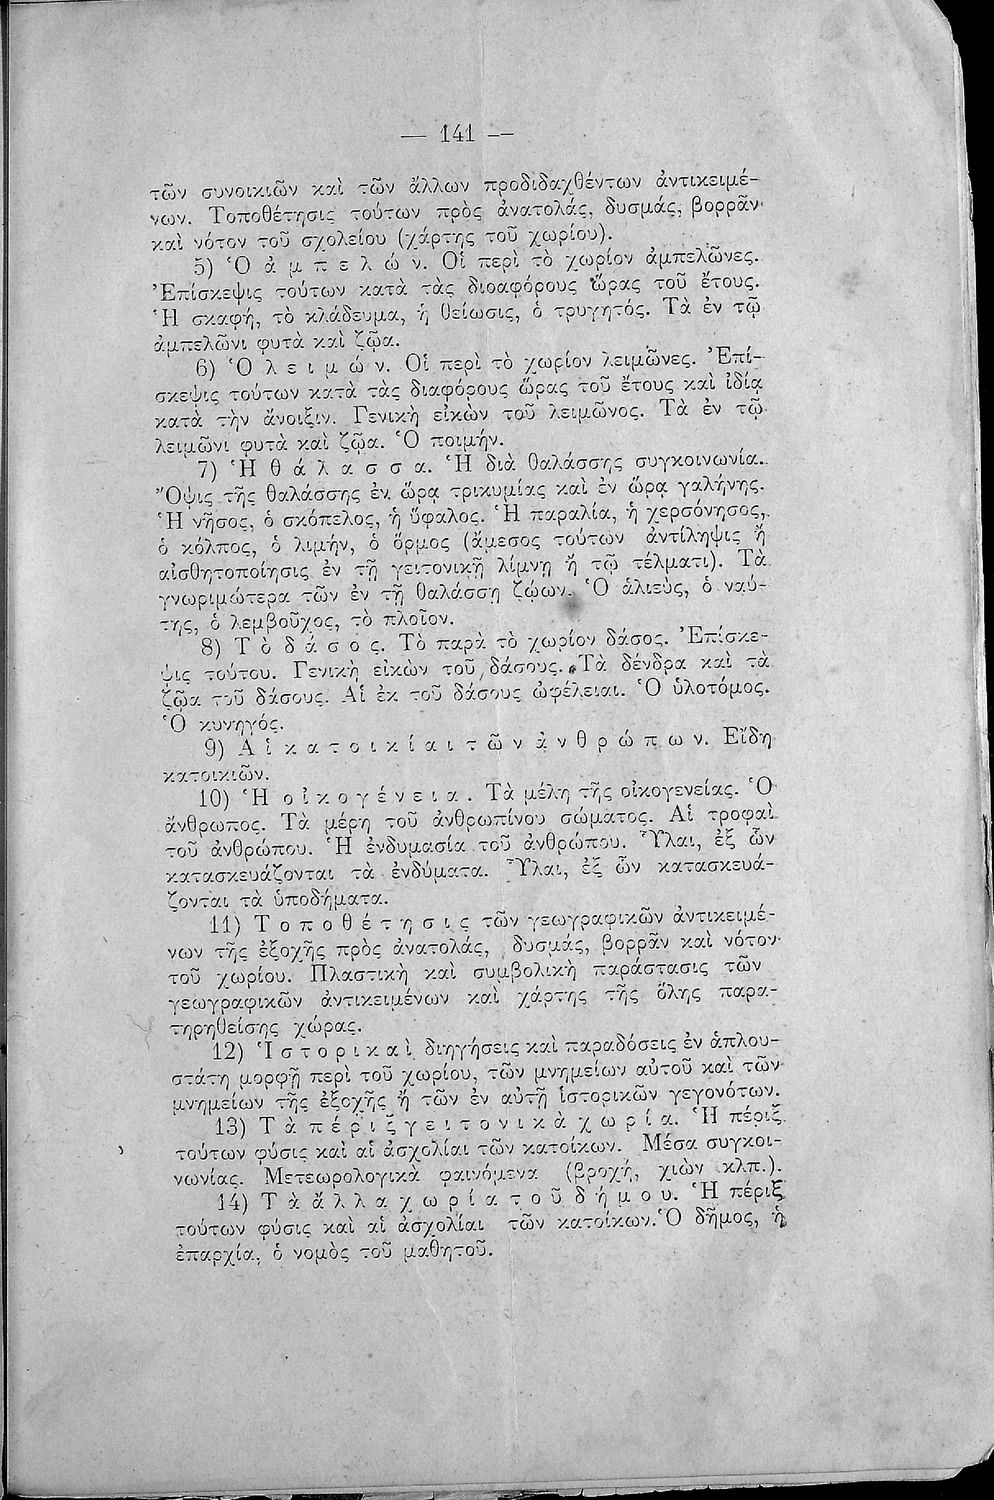 — 141 —
τῶν συνοικιῶν καὶ τῶν ἄλλων προδιδαχθέντων ἀντικειμέ-
νων. Τοποθέτησις τούτων πρὸς ἀνατολάς, δυσμάς, βορρᾶν
καὶ νότον τοῦ σχολείου (χάρτης τοῦ χωρίου).
5) Ὁ ἀ μ π ε λ ώ ν. Οἱ περὶ τὸ χωρίον ἀμπελῶνες.
Ἐπίσκεψις τούτων κατὰ τὰς διοαφόρους ὥρας τοῦ ἔτους.
Ἡ σκαφή, τὸ κλάδευμα, ἡ θείωσις, ὁ τρυγητός. Τὰ ἐν τῷ
ἀμπελῶνι φυτὰ καὶ ζῷα.
6) Ὁ λ ε ι μ ώ ν. Οἱ περὶ τὸ χωρίον λειμῶνες. Ἐπί-
σκεψις τούτων κατὰ τὰς διαφόρους ὥρας τοῦ ἔτους καὶ ἰδίᾳ
κατὰ τὴν ἄνοιξιν. Γενικὴ εἰκὼν τοῦ λειμῶνος. Τὰ ἐν τῷ
λειμῶνι φυτὰ καὶ ζῷα. Ὁ ποιμήν.
7) Ἡ θ ά λ α σ σ α. Ἡ διὰ θαλάσσης συγκοινωνία.
Ὄψις τῆς θαλάσσης ἐν ὥρᾳ τρικυμίας καὶ ἐν ὥρᾳ γαλήνης.
Ἡ νῆσος, ὁ σκόπελος, ἡ ὕφαλος. Ἡ παραλία, ἡ χερσόνησος,
ὁ κόλπος, ὁ λιμήν, ὁ ὅρμος (ἄμεσος τούτων ἀντίληψις ἢ
αἰσθητοποίησις ἐν τῇ γειτονικῇ λίμνῃ ἢ τῷ τέλματι). Τὰ
γνωριμώτερα τῶν ἐν τῇ θαλάσσῃ ζῴων. Ὁ ἁλιεὺς, ὁ ναύ-
της, ὁ λεμβοῦχος, τὸ πλοῖον.
8) Τ ὸ δ ά σ ο ς. Τὸ παρὰ τὸ χωρίον δάσος. Ἐπίσκε-
ψις τούτου. Γενικὴ εἰκὼν τοῦ δάσους. Τὰ δένδρα καὶ τὰ
ζῷα τοῦ δάσους. Αἱ ἐκ τοῦ δάσους ὠφέλειαι. Ὁ ὑλοτόμος.
Ὁ κυνηγός.
9) Α ἱ κ α τ ο ι κ ί α ι τ ῶ ν ἀ ν θ ρ ώ π ω ν. Εἴδη
κατοικιῶν.
10) Ἡ ο ἰ κ ο γ έ ν ε ι α . Τὰ μέλη τῆς οἰκογενείας. Ὁ
ἄνθρωπος. Τὰ μέρη τοῦ ἀνθρωπίνου σώματος. Αἱ τροφαὶ
τοῦ ἀνθρώπου. Ἡ ἐνδυμασία τοῦ ἀνθρώπου. Ὕλαι, ἐξ ὧν
κατασκευάζονται τὰ ἐνδύματα. Ὕλαι, ἐξ ὧν κατασκευά-
ζονται τὰ ὑποδήματα.
11) Τ ο π ο θ έ τ η σ ι ς τῶν γεωγραφικῶν ἀντικειμέ-
νων τῆς ἐξοχῆς πρὸς ἀνατολάς, δυσμάς, βορρᾶν καὶ νότον
τοῦ χωρίου. Πλαστικὴ καὶ συμβολικὴ παράστασις τῶν
γεωγραφικῶν ἀντικειμένων καὶ χάρτης τῆς ὅλης παρα-
τηρηθείσης χώρας.
12) Ἱ σ τ ο ρ ι κ α ὶ διηγήσεις καὶ παραδόσεις ἐν ἁπλου-
στάτῃ μορφῇ περὶ τοῦ χωρίου, τῶν μνημείων αὐτοῦ καὶ τῶν
μνημείων τῆς ἐξοχῆς ἢ τῶν ἐν αὐτῇ ἱστορικῶν γεγονότων.
13) Τ ὰ π έ ρ ι ξ γ ε ι τ ο ν ι κ ὰ χ ω ρ ί α. Ἡ πέριξ
τούτων φύσις καὶ αἱ ἀσχολίαι τῶν κατοίκων. Μέσα συγκοι-
νωνίας. Μετεωρολογικὰ φαινόμενα (βροχή, χιὼν κλπ.).
14) Τ ὰ ἄ λ λ α χ ω ρ ί α τ ο ῦ δ ή μ ο υ. Ἡ πέριξ
τούτων φύσις καὶ αἱ ἀσχολίαι τῶν κατοίκων. Ὁ δῆμος, ἡ
ἐπαρχία, ὁ νομὸς τοῦ μαθητοῦ.